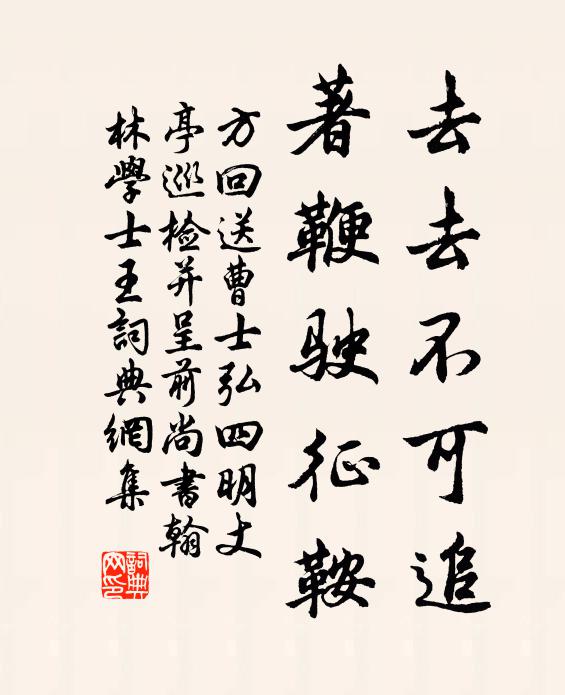 去去不可追
著鞭駛征鞍
方回送曹士弘四明丈
亭巡檢并呈前尚書翰
林學士王詞典網集
詞典网印